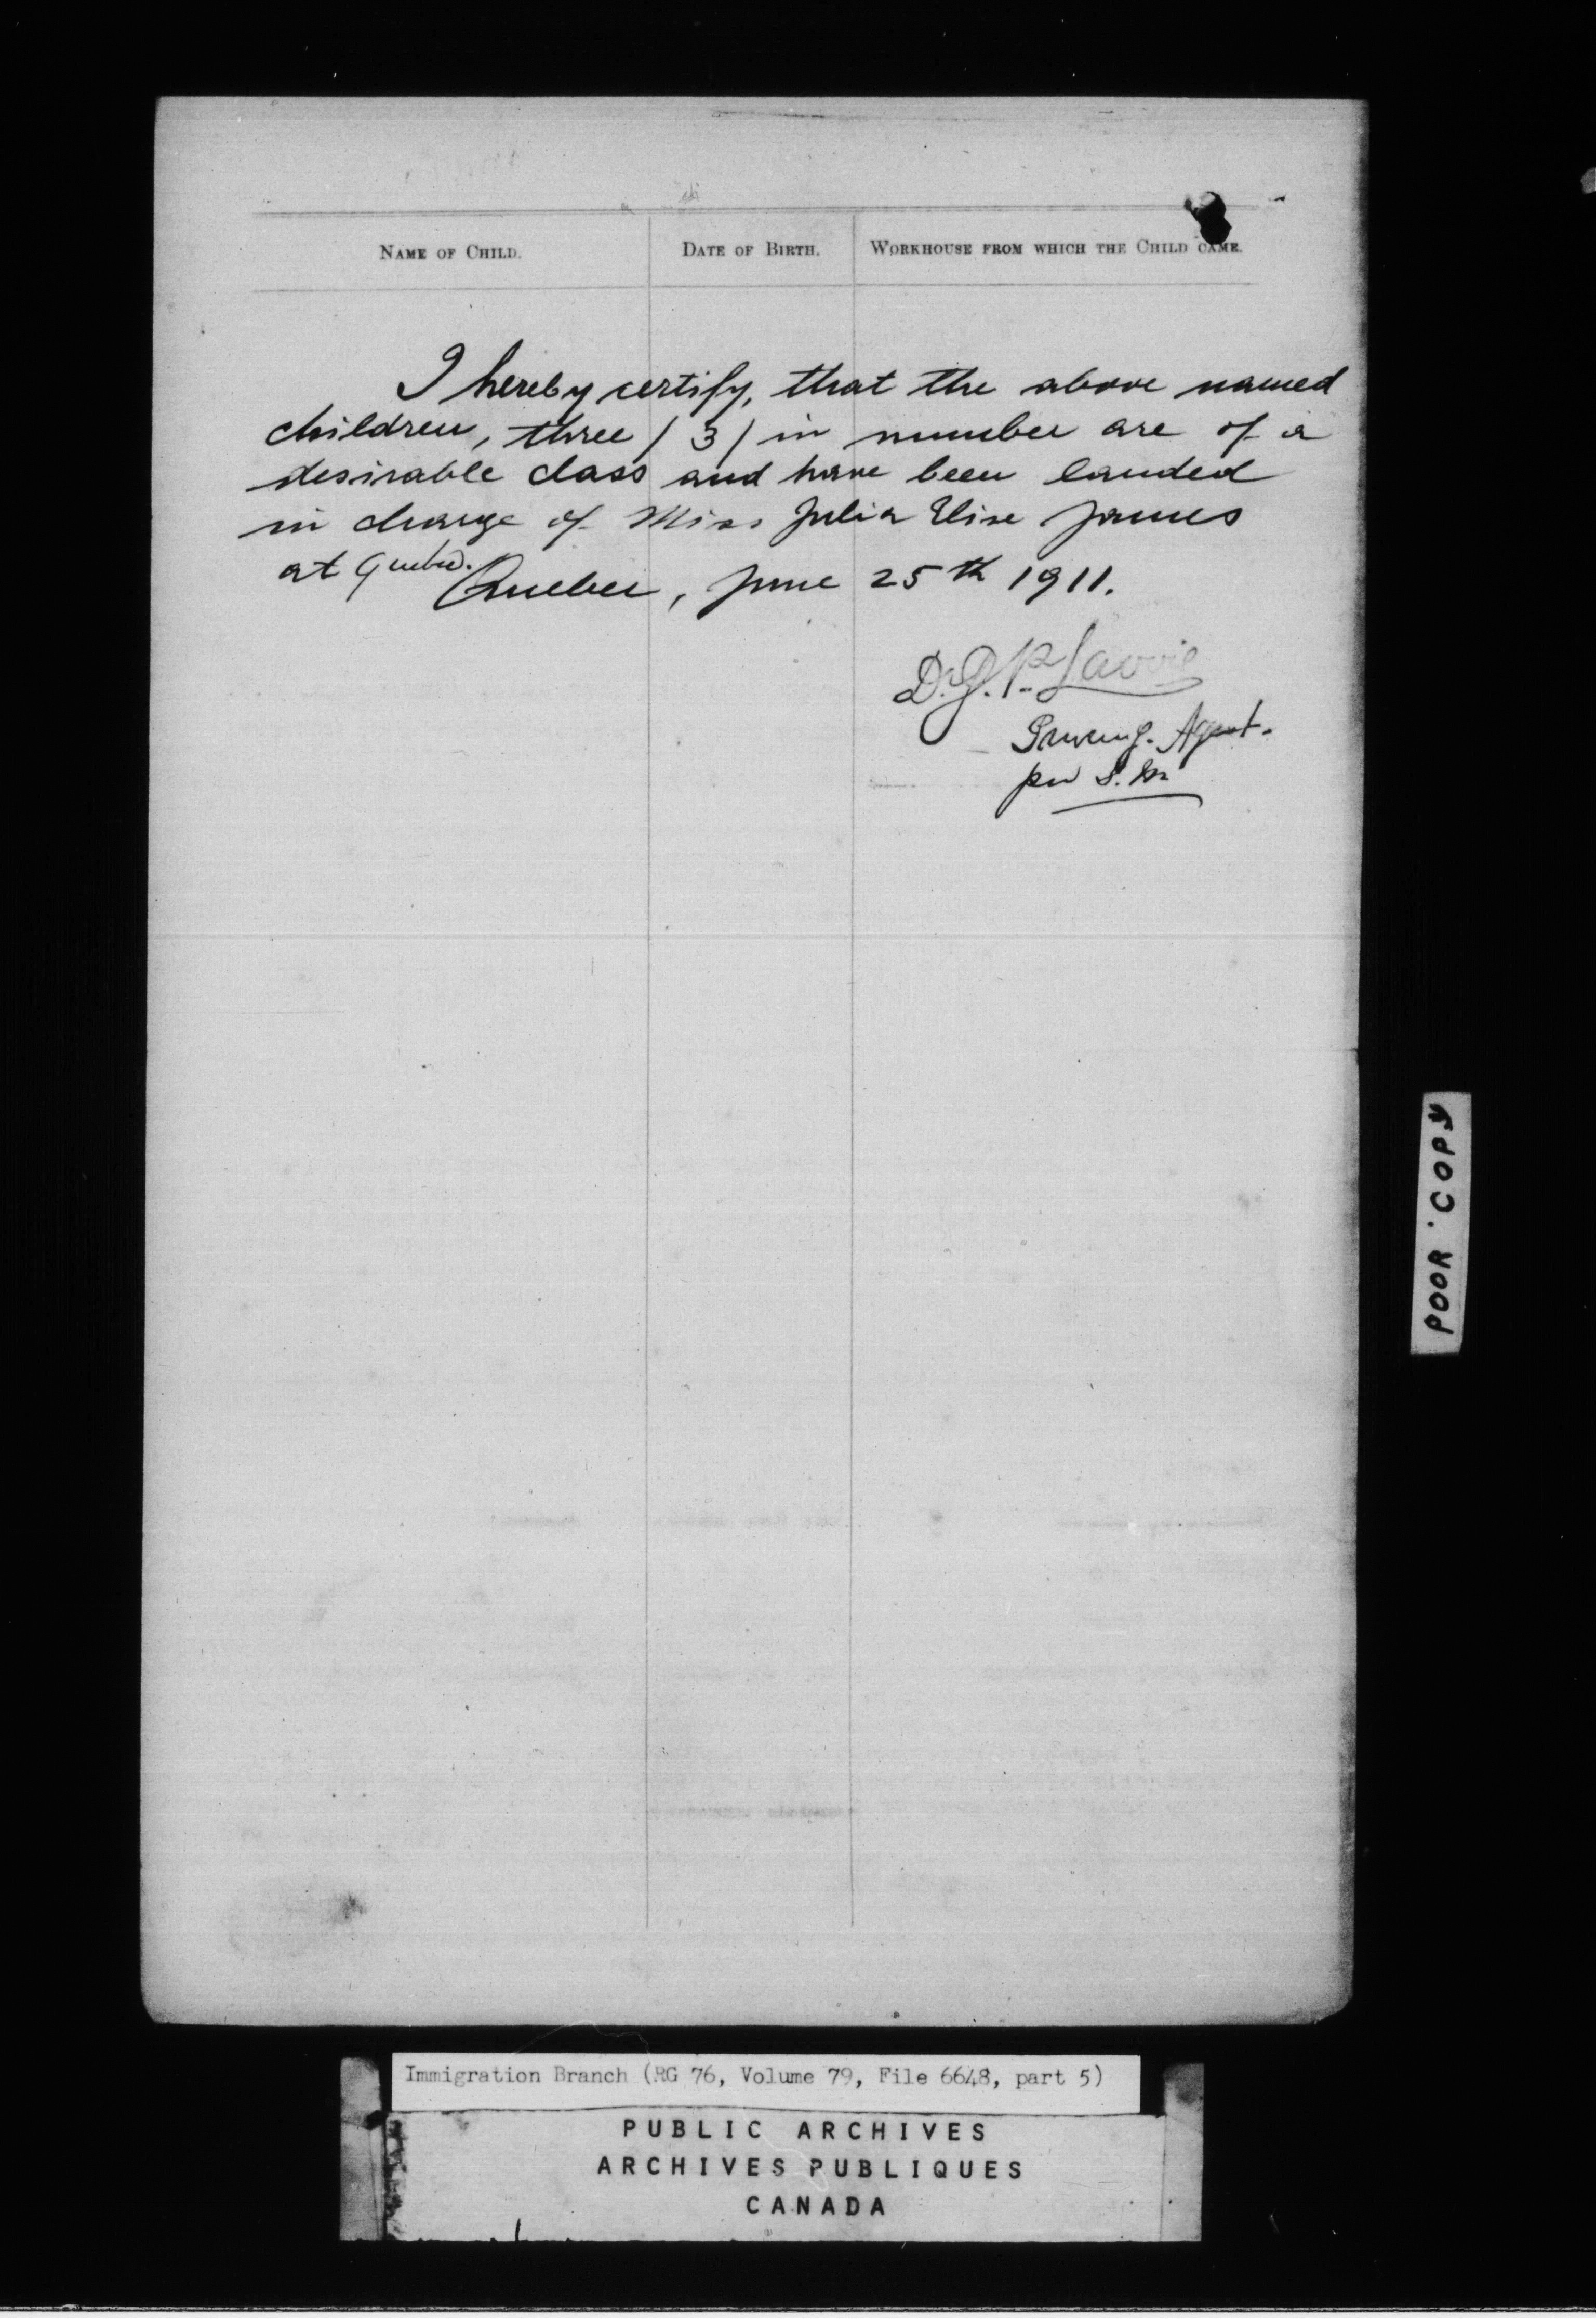 NAME OF CHILD. DATE OF BIRTH. WORKHOUSE FROM WHICH THE CHILD CAME.
I hereby certify, that the above named
children, three / 3 / in number are of a
desirable class and have been landed
in charge of Miss Julia Elise James
at Quebec.
Quebec, June 25th 1911.
D. J. P. Lavoie
Agent.
per S. M
POOR COPY
Immigration Branch (RG 76, Volume 79, File 6648, part 5)
PUBLIC ARCHIVES
ARCHIVES PUBLIQUES
CANADA